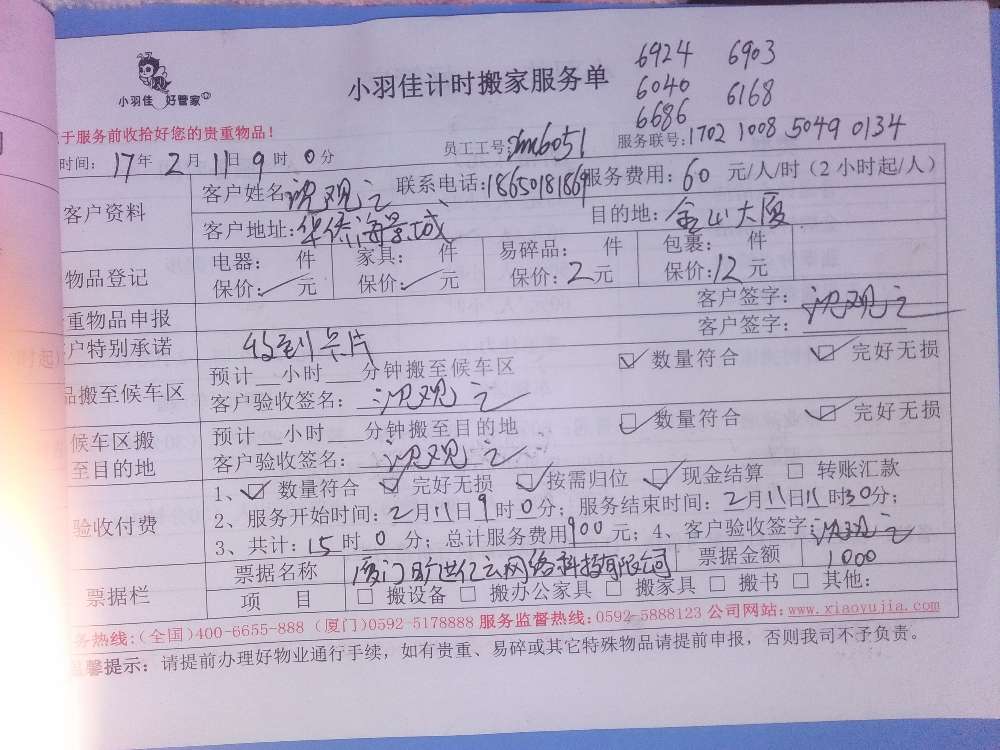 小羽佳 好管家
小羽佳计时搬家服务单
6924 6903
6040 6168
6686
于服务前收拾好您的贵重物品!
员工工号: 服务联号:1702 1008 5049 0134
时间: 17年 2月 11日 9时 0分
客户资料 客户姓名:沈观之 联系电话:18650181869 服务费用:60 元/人/时(2小时起/人)
客户地址:华侨海景城 目的地:金山大厦
物品登记 电器: 件 家具: 件 易碎品: 件 包裹: 件
保价:✓元 保价:✓元 保价:2元 保价:12元
重物品申报 客户签字:沈观之
户特别承诺 收到卡片 客户签字:
品搬至候车区 预计__小时___分钟搬至候车区 ☑ 数量符合 ☑ 完好无损
客户验收签名:沈观之
候车区搬 预计__小时___分钟搬至目的地 ☑ 数量符合 ☑ 完好无损
至目的地 客户验收签名:沈观之
验收付费 1、☑ 数量符合 ☑ 完好无损 ☑ 按需归位 ☑ 现金结算 □ 转账汇款
2、服务开始时间:2月11日9时0分;服务结束时间:2月11日11时30分;
3、共计:15时0分;总计服务费用900元;4、客户验收签字:沈观之
票据栏 票据名称 厦门旷世亿云网络科技有限公司 票据金额 1000
项 目 □ 搬设备 □ 搬办公家具 □ 搬家具 □ 搬书 □ 其他:
务热线:(全国)400-6655-888 (厦门)0592-5178888 服务监督热线:0592-5888123 公司网站:www.xiaoyujia.com
温馨提示:请提前办理好物业通行手续,如有贵重、易碎或其它特殊物品请提前申报,否则我司不予负责。